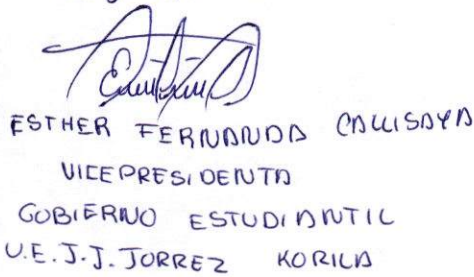 ESTHER FERNANDA CALLISAYA
VICEPRESIDENTA
GOBIERNO ESTUDIANTIL
U.E. J.J. TORREZ KORILA